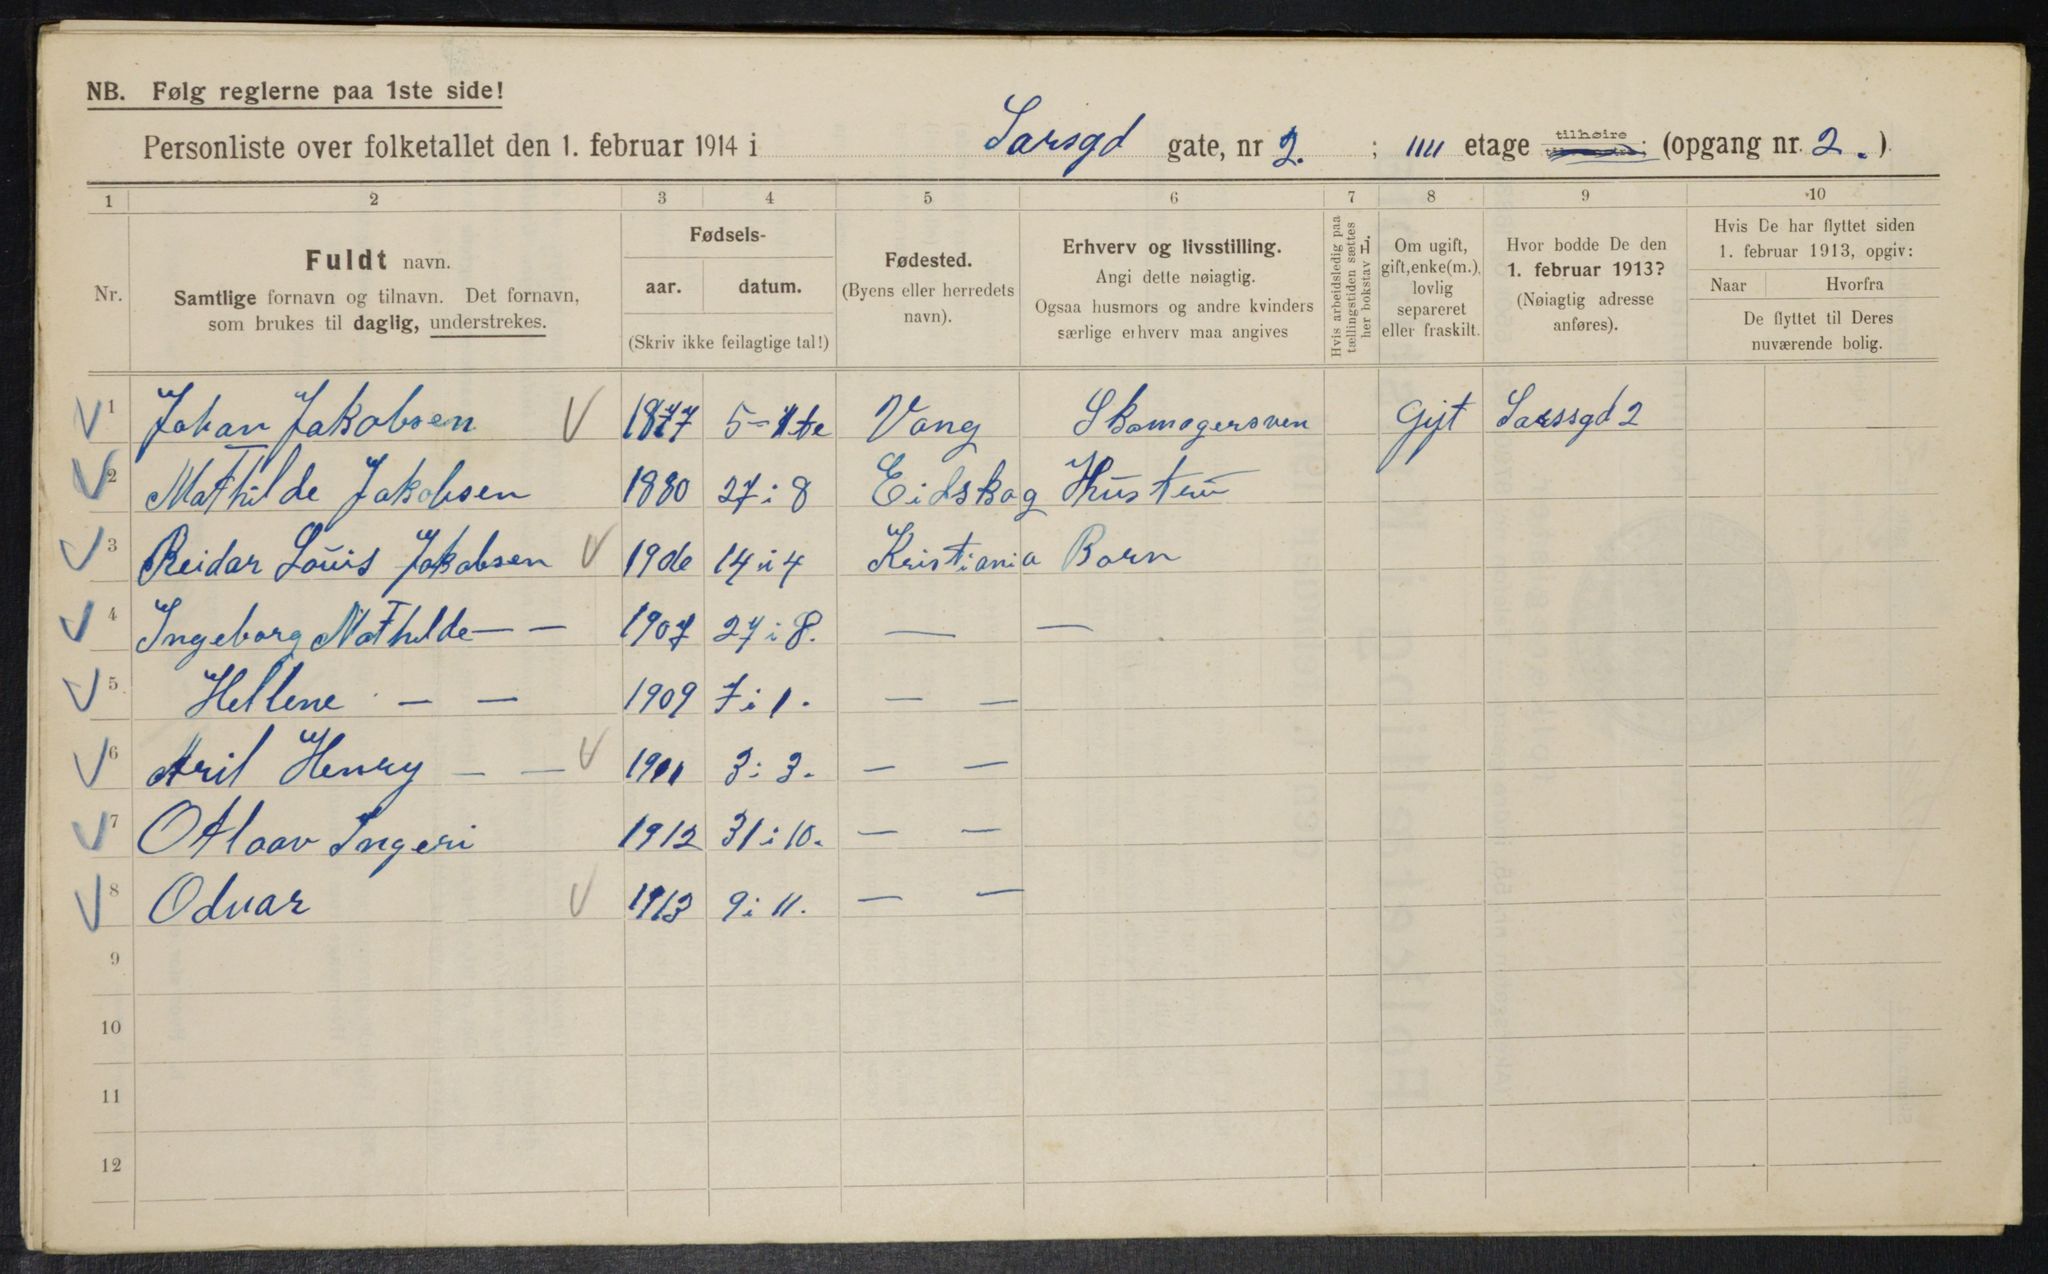 NB. Følg reglerne paa 1ste side!
Personliste over folketallet den 1. februar 1914 i Sarsgd gate, nr 2. ; IIII etage tilhøire (opgang nr. 2.)
1 2 3 4 5 6 7 8 9 10
Nr.
Fuldt navn.
Samtlige fornavn og tilnavn. Det fornavn,
som brukes til daglig, understrekes.
Fødsels-
aar. datum.
(Skriv ikke feilagtige tal!)
Fødested.
(Byens eller herredets
navn).
Erhverv og livsstilling.
Angi dette nøiagtig.
Ogsaa husmors og andre kvinders
særlige erhverv maa angives
Hvis arbeidsledig paa
tællingstiden sættes
her bokstav L.
Om ugift,
gift, enke(m.),
lovlig
separeret
eller fraskilt.
Hvor bodde De den
1. februar 1913?
(Nøiagtig adresse
anføres).
Hvis De har flyttet siden
1. februar 1913, opgiv:
Naar Hvorfra
De flyttet til Deres
nuværende bolig.
1 Johan Jakobsen 1877 5-1te Vang Skomagersven Gift Sarssgd 2
2 Mathilde Jakobsen 1880 27 i 8 Eidskog Hustru
3 Reidar Louis Jakobsen 19de 14 i 4 Kristiania Barn
4 Ingeborg Mathilde — — 1907 27 i 8. — —
5 Hellene — — 1909 7 i 1. — —
6 Aril Henry — — 1911 3 i 3. — —
7 Otlaav Ingeri 1912 31 i 10. — —
8 Odvar 1913 9 i 11. — —
9
10
11
12